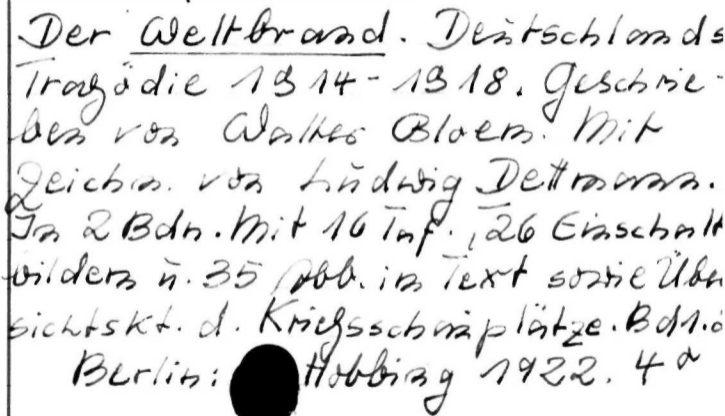 Der Weltbrand. Deutschlands
Tragödie 1914-1918. Geschrie-
ben von Walter Bloem. Mit
Zeichn. von Ludwig Dettmann.
In 2 Bdn. Mit 16 Taf., 26 Einschalt
bildern u. 35 Abb. im Text sowie Über
sichtskt. d. Kriegsschauplätze. Bd 1.
Berlin: Hobbing 1922. 4°